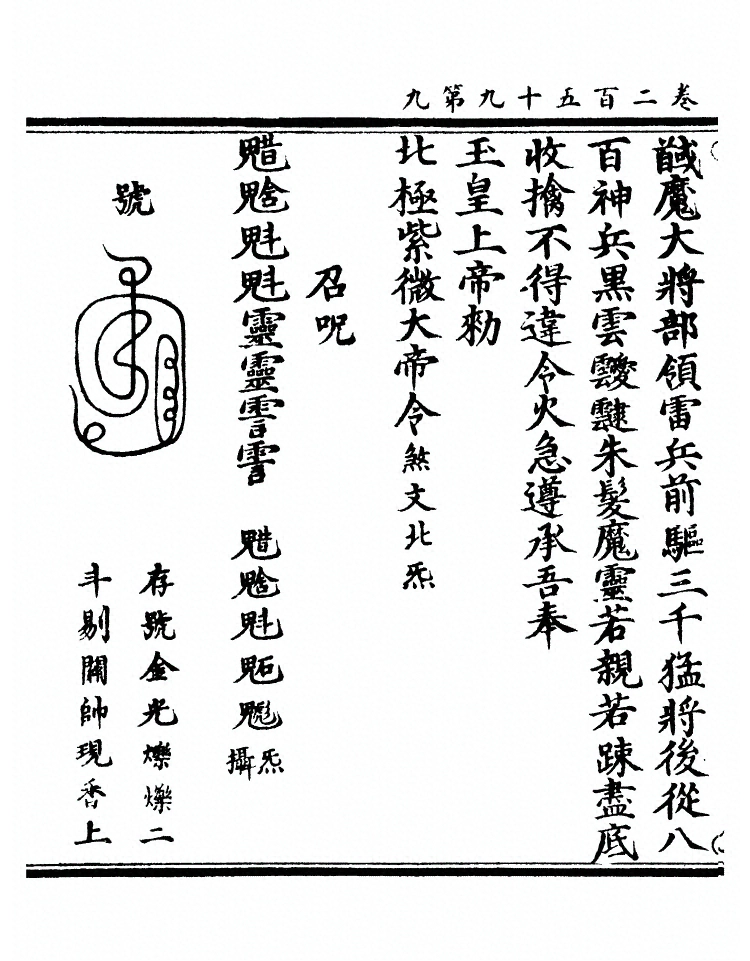 卷二百五十九第九
馘魔大將部領雷兵前驅三千猛將後從八
百神兵黑雲靉靆朱髮魔靈若親若踈盡底
收擒不得違令火急遵承吾奉
玉皇上帝勑
北極紫微大帝令煞文北炁
召呪
魁魁靈靈 魁
炁
攝
號
存號金光爍爍二
斗剔開帥現香上